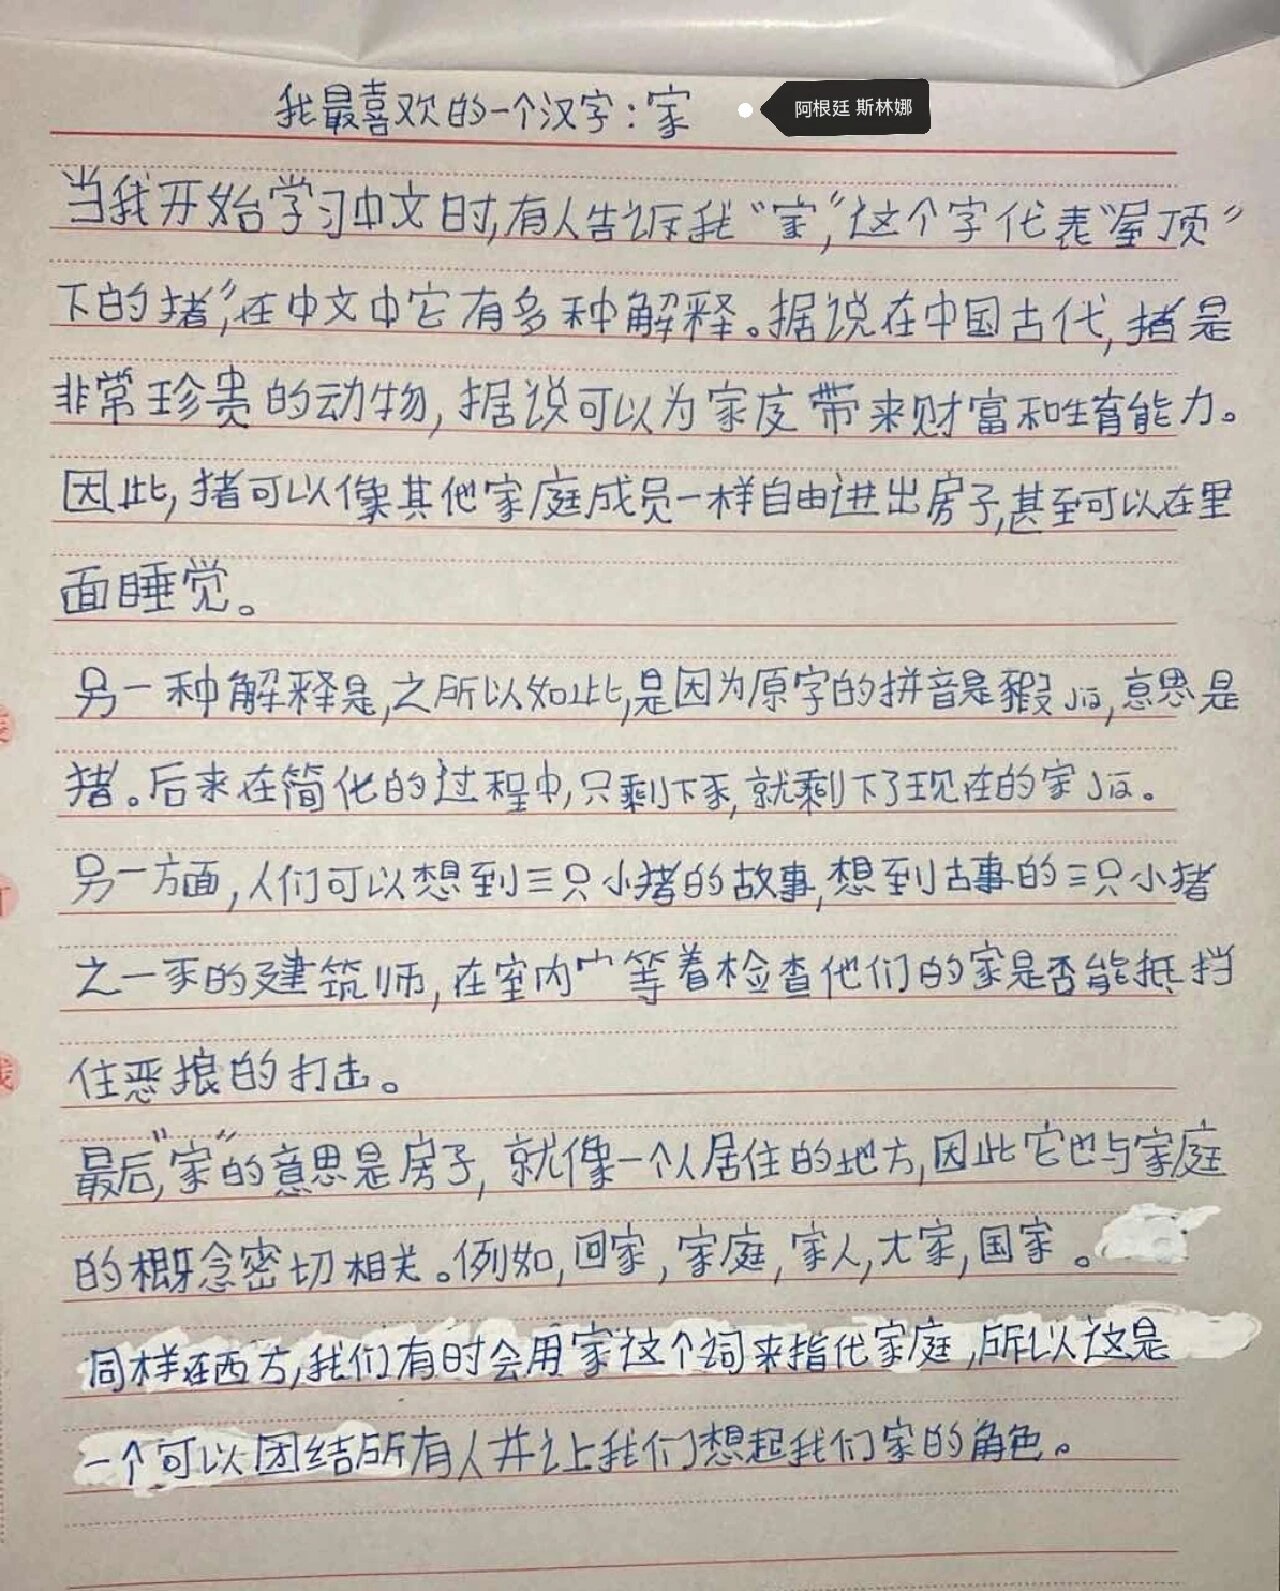 我最喜欢的一个汉字：家
阿根廷 斯林娜
当我开始学习中文时,有人告诉我“家”,这个字代表“屋顶”
下的猪”,在中文中它有多种解释。据说在中国古代,猪是
非常珍贵的动物,据说可以为家庭带来财富和生育能力。
因此,猪可以像其他家庭成员一样自由进出房子,甚至可以在里
面睡觉。
另一种解释是,之所以如此,是因为原字的拼音是豭jiā,意思是
猪。后来在简化的过程中,只剩下豕,就剩下了现在的家jiā。
另一方面,人们可以想到三只小猪的故事,想到古事的三只小猪
之一豕的建筑师,在室内宀等着检查他们的家是否能抵挡
住恶狼的打击。
最后,“家”的意思是房子,就像一个人居住的地方,因此它也与家庭
的概念密切相关。例如,回家,家庭,家人,大家,国家。
同样在西方,我们有时会用家这个词来指代家庭,所以这是
一个可以团结所有人并让我们想起我们家的角色。